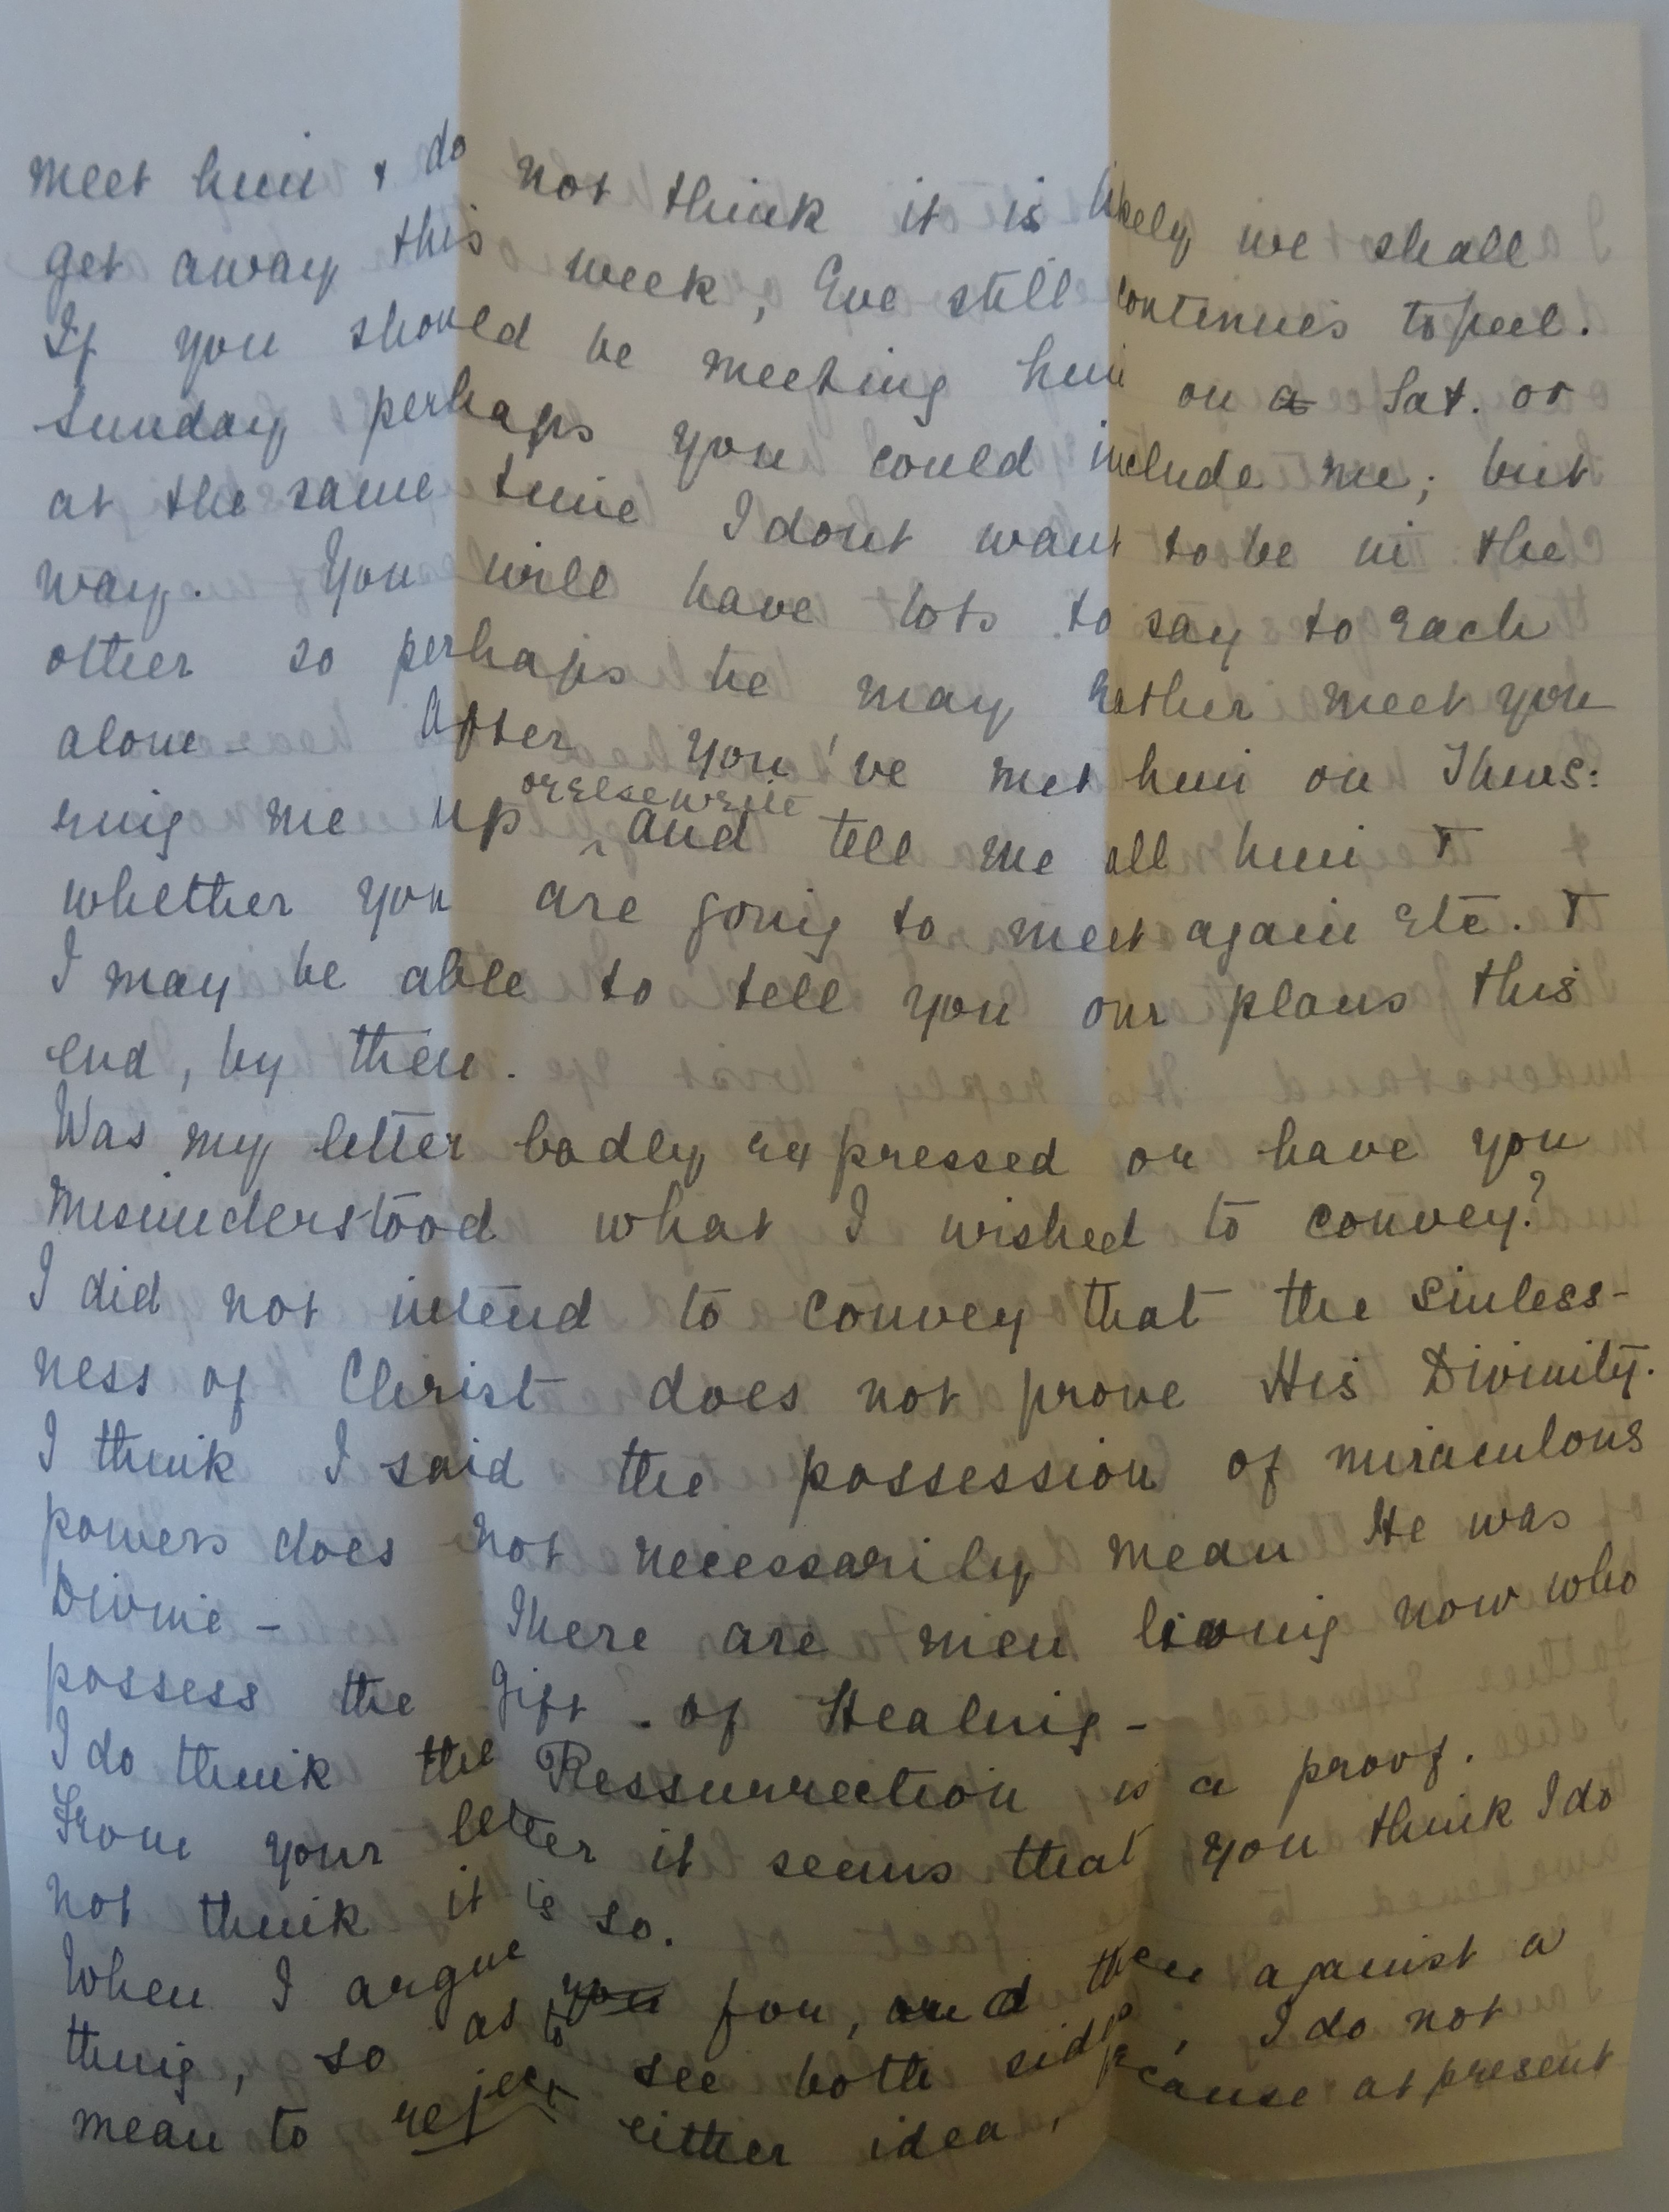 meet him & do not think it is likely we shall
get away this week, Eve still continues to peel.
If you should be meeting him on a Sat. or
Sunday perhaps you could include me; but
at the same time I dont want to be in the
way. You will have lots to say to each
other so perhaps he may rather meet you
alone - After you've met him on Thurs:
or else write
ring me up ^ and tell me all him &
whether you are going to meet again etc. &
I may be able to tell you our plans this
end, by then.
Was my letter badly expressed or have you
misunderstood what I wished to convey?
I did not intend to convey that the Sinless-
ness of Christ does not prove His Divinity.
I think I said the possession of miraculous
powers does not necessarily mean He was
Divine - There are men living now who
possess the gift - of Healing -
I do think the Ressurrection is a proof.
From your letter it seems that you think I do
not think it is so.
When I argue you for, and then against a
thing, so as to see both sides, I do not
mean to reject either idea, because at present